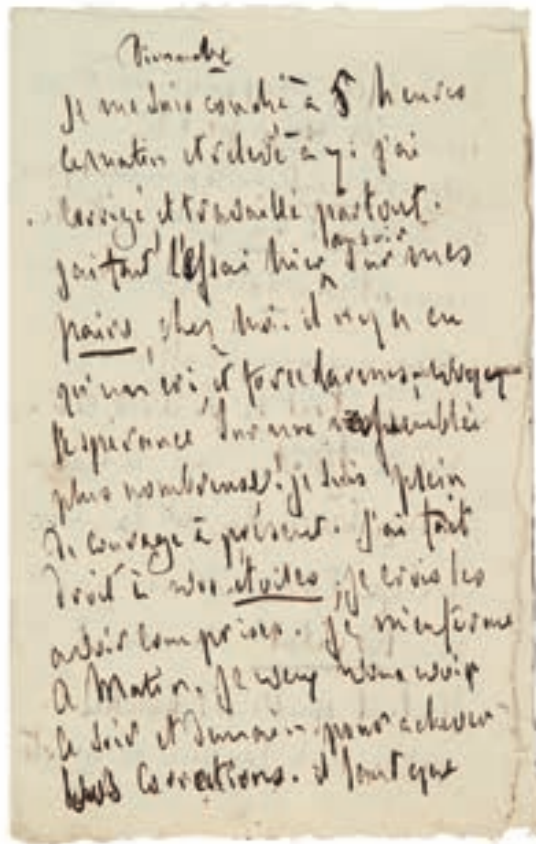 Dimanche
Je me suis couché à 5 heures
ce matin et relevé à 7. j'ai
corrigé et travaillé partout.
j'ai fait l'essai hier au soir sur mes
pairs, chez moi. il n'y a eu
qu'un cri, et force
l'espérance sur une assemblée
plus nombreuse. je suis plein
de courage à présent. J'ai fait
droit à vos étoiles, je crois les
avoir comprises. Je m'enferme
Matin. Je veux
ce soir et demain pour achever
corrections. il faut que